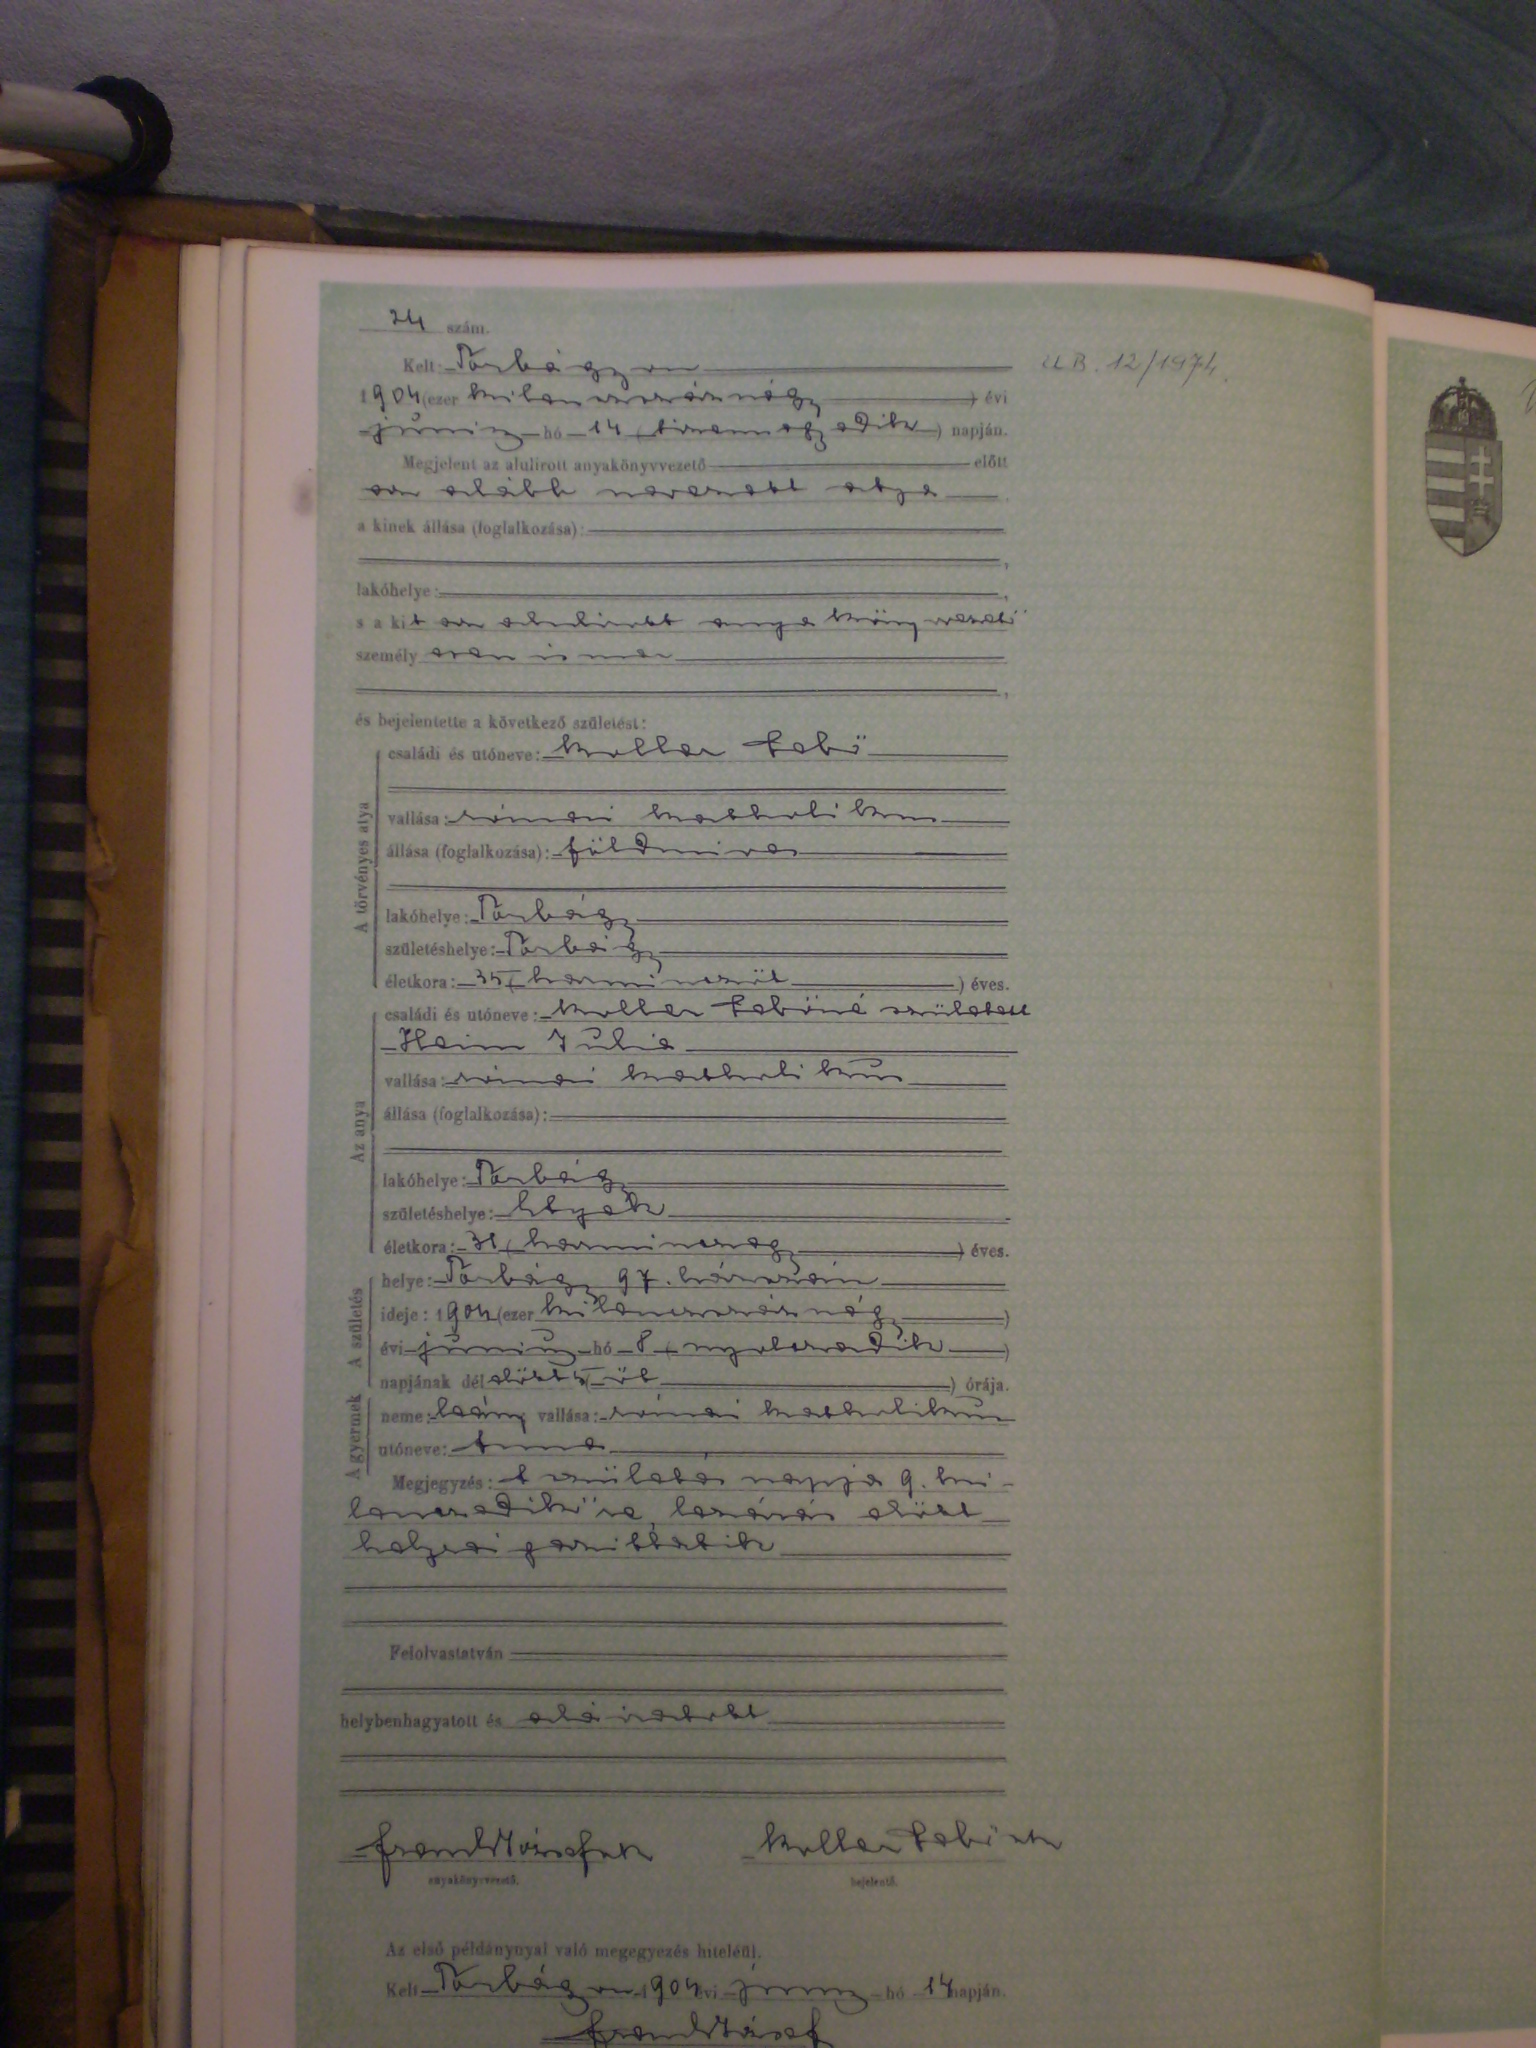 24 szám.
Kelt: Torbágyon U.B. 12/1974.
1904 (ezer kilenczszáznégy) évi
június hó 14 (tizennegyedik) napján.
Megjelent az alulirott anyakönyvvezető előtt
az alább nevezett atya
a kinek állása (foglalkozása):
lakóhelye:
s a kit az alulirott anyakönyvvezető
személyesen ismer
és bejelentette a következő születést:
A törvényes atya
családi és utóneve: Koller
vallása: római katholikus
állása (foglalkozása): földmives
lakóhelye: Torbágy
születéshelye: Torbágy
életkora: 35 (harminczöt) éves.
Az anya
családi és utóneve: Koller született
Heim Julia
vallása: római katholikus
állása (foglalkozása):
lakóhelye: Torbágy
születéshelye: Etyek
életkora: 31 (harminczegy) éves.
A születés
helye: Torbágy 97. házszám
ideje: 1904 (ezer kilenczszáznégy)
évi június hó 8 (nyolczadik)
napjának délelőtt 5 (öt) órája.
A gyermek
neme: leány vallása: római katholikus
utóneve: Anna
Megjegyzés: A születés napja 9. ki-
lenczedikőre lezárás előtt
helyesbittetik
Felolvastatván
helybenhagyatott és aláiratott
anyakönyvvezető. bejelentő.
Az első példánynyal való megegyezés hiteléül.
Kelt Torbágyon 1904 évi június hó 14 napján.